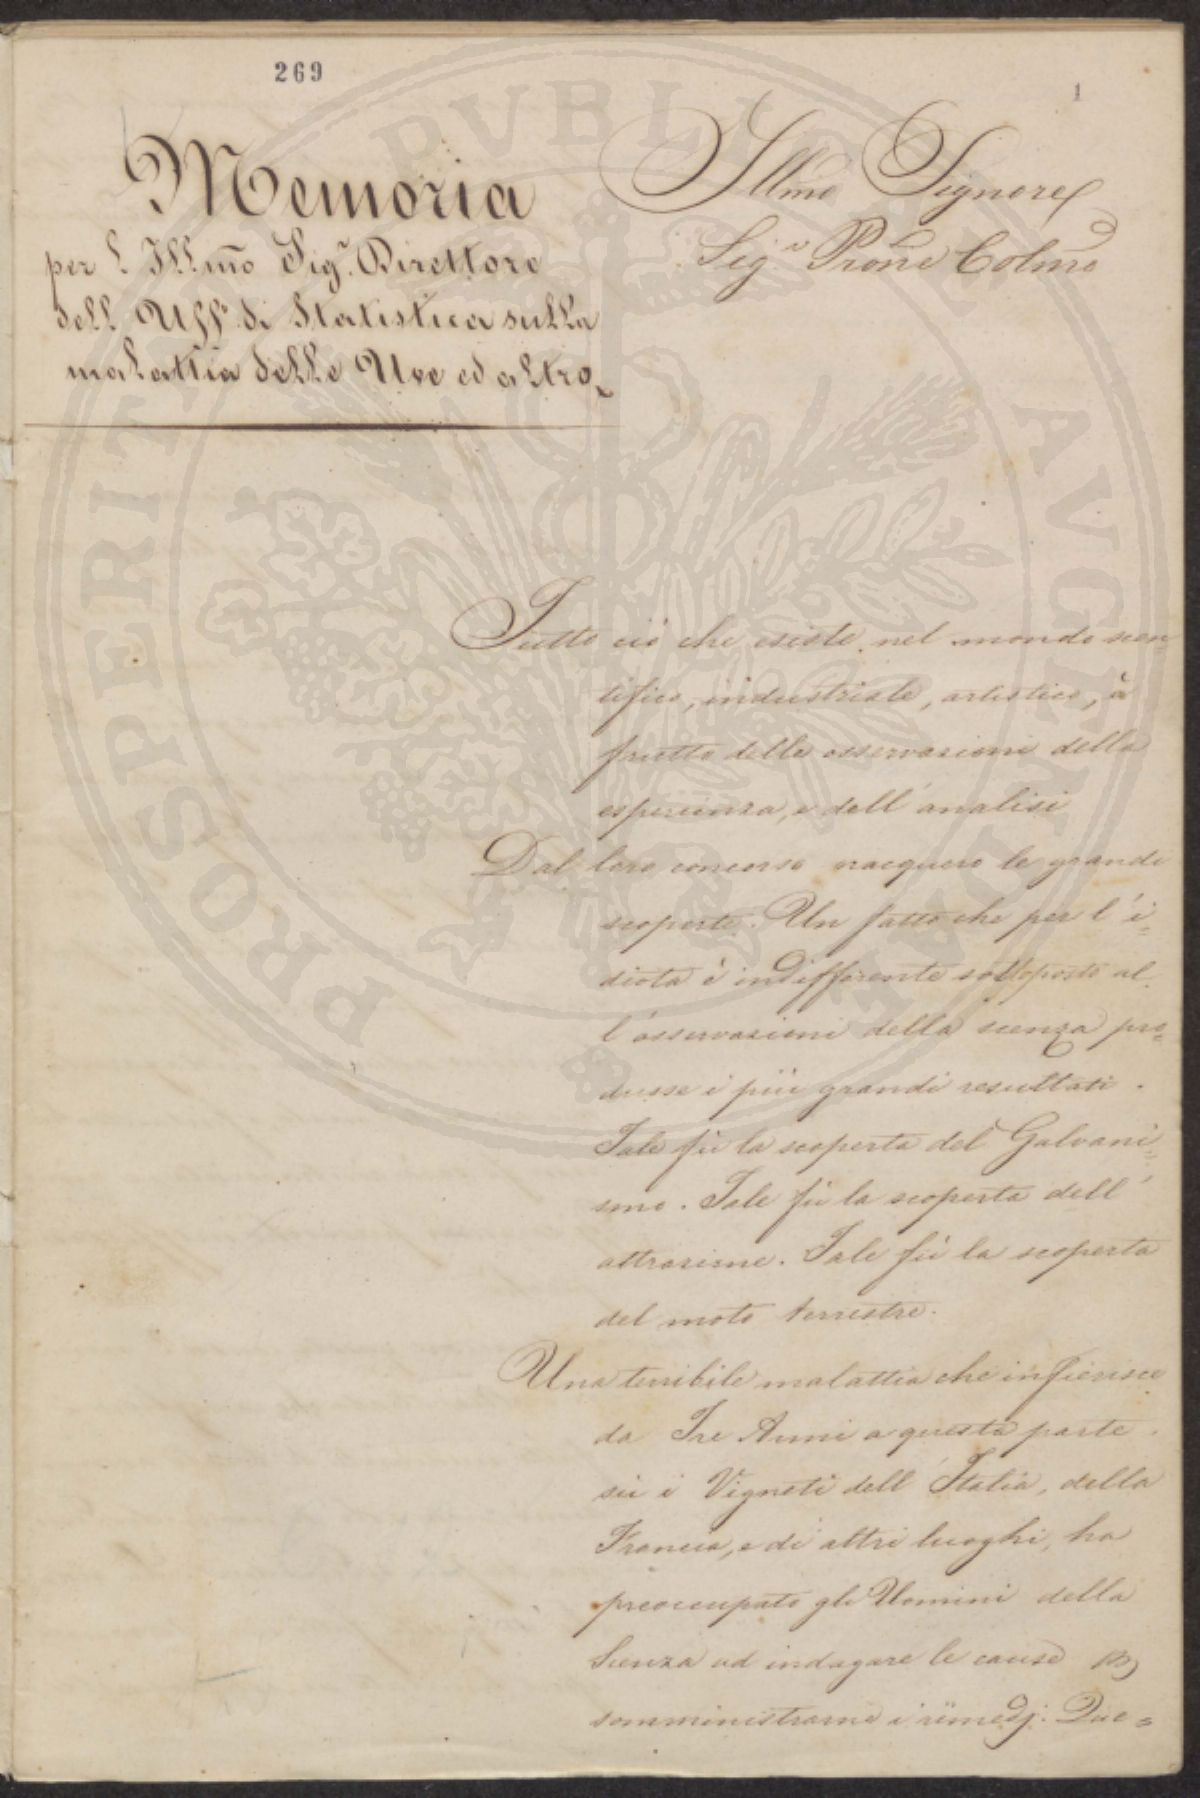 269
1
Memoria
per l. Illmo Sig.r Direttore
dell Uff.o di Statistica sulla
malattia delle Uve ed altro
Illmo Signore
Sig.r Prone Colmo
Tutto ciò che esiste nel mondo scen
tifico, industriale, artistico, è
frutto delle osservazioni della
esperienza, e dell'analisi
Dal loro concorso nacquero le grandi
scoperte. Un fatto che per l'i=
diota è indifferente sottoposto al
l'osservazioni della scenza pro=
dusse i più grandi resultati.
Tale fù la scoperta del Galvani=
smo. Tale fù la scoperta dell'
attrazione. Tale fù la scoperta
del moto terrestre.
Una terribile malattia che infierisce
da Tre Anni a questa parte
sù i Vigneti dell'Italia, della
Francia, e di altri luoghi, ha
preoccupato gli Uomini della
Scenza ad indagare le cause
somministrarne i rimedj. Que=
PROSPERITATI PVBLICAE AVGENDAE